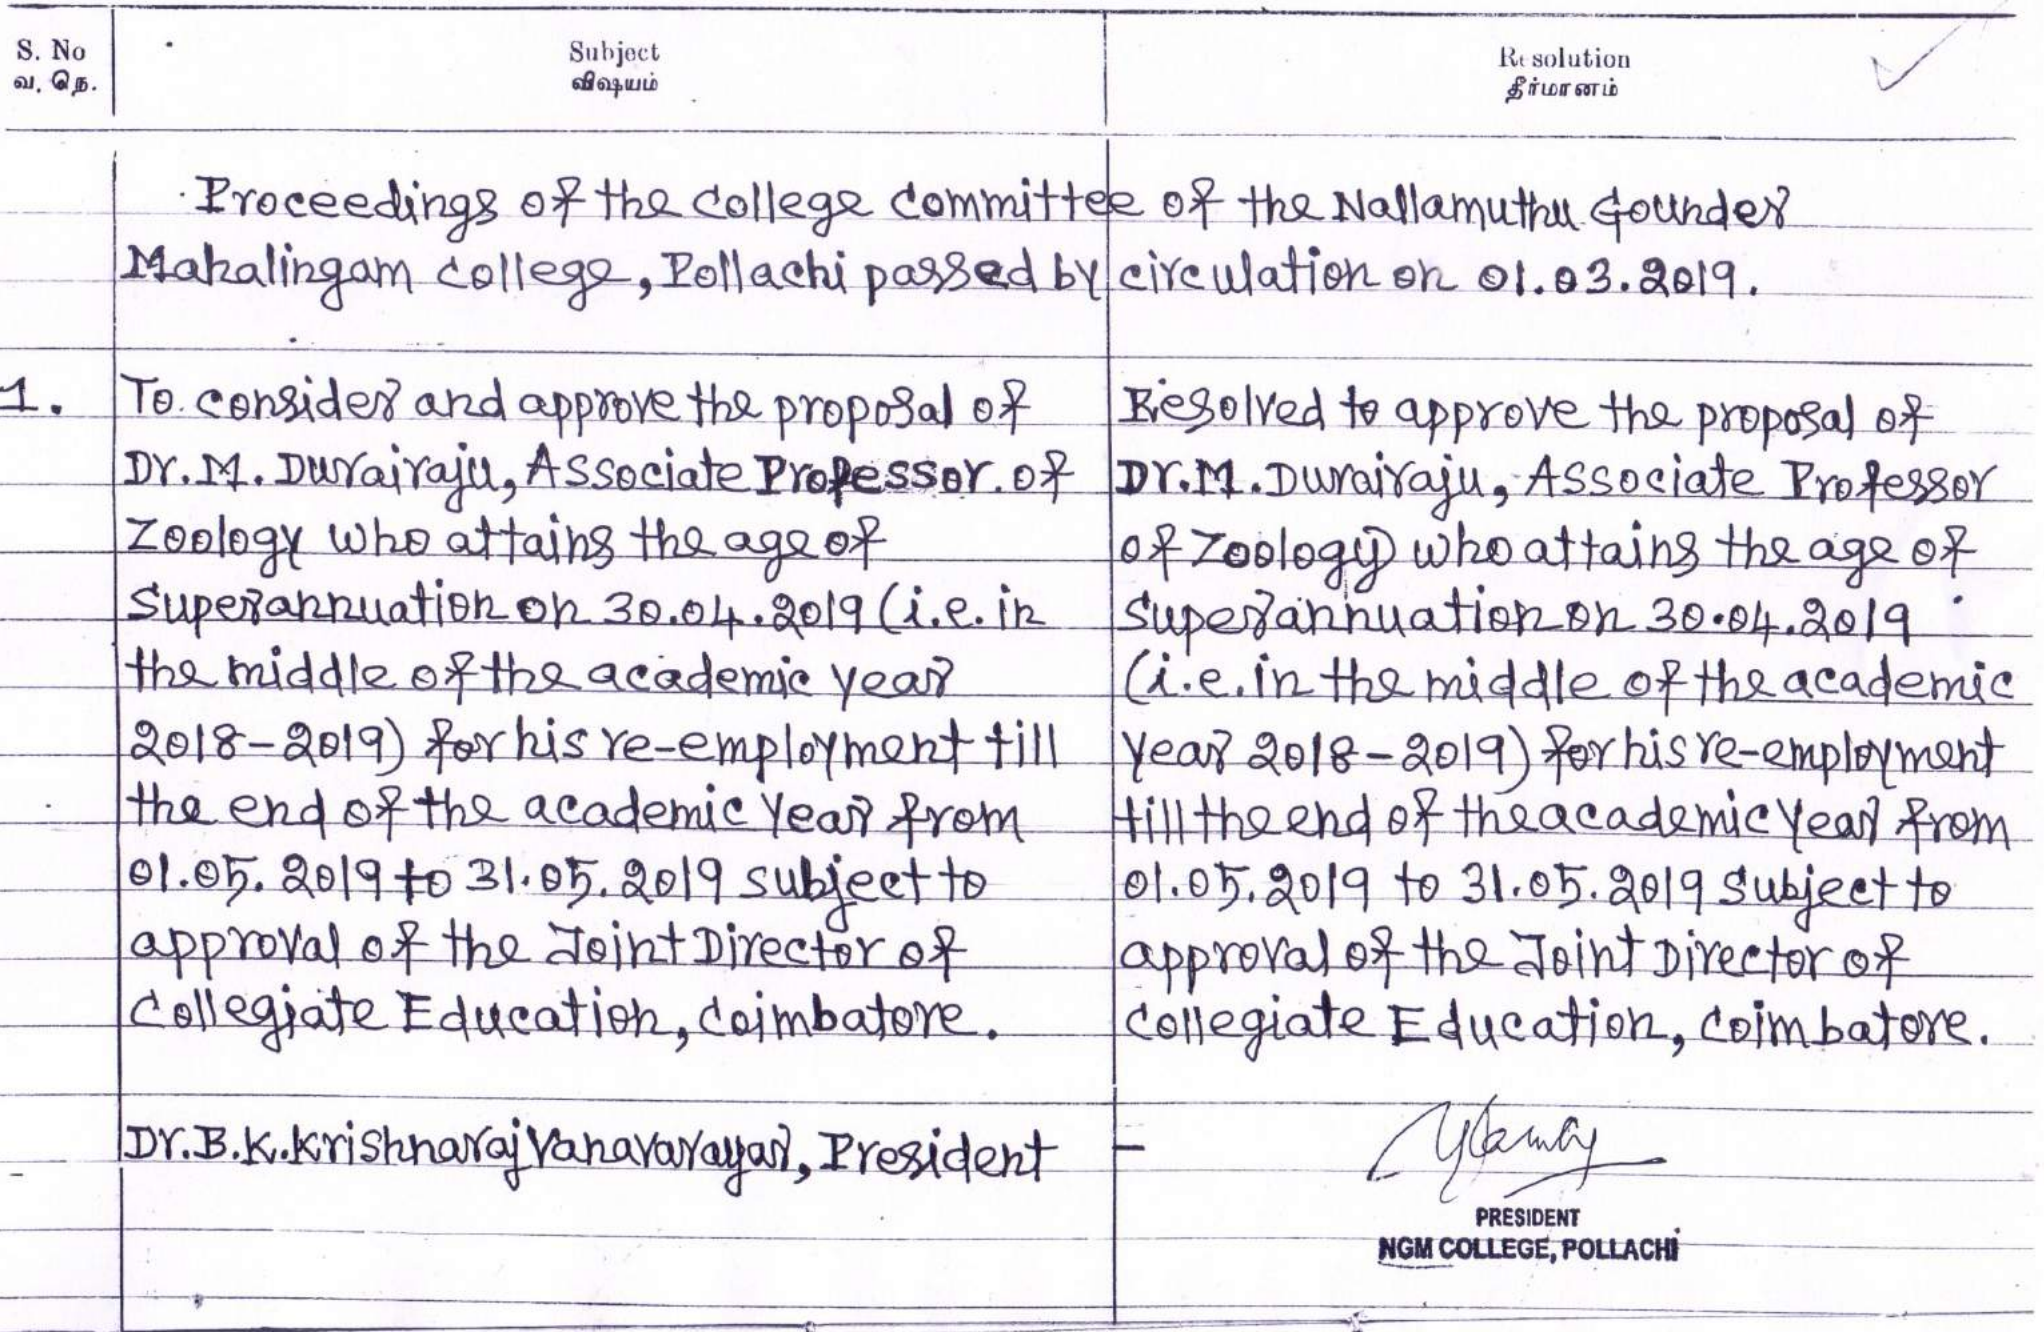 S. No
வ. நெ.
Subject
விஷயம்
Resolution
தீர்மானம்
Proceedings of the College Committee of the Nallamuthu Gounder
Mahalingam College, Pollachi passed by circulation on 01.03.2019.
1.
To consider and approve the proposal of
Dr.M. Durairaju, Associate Professor of
Zoology who attains the age of
Superannuation on 30.04.2019 (i.e. in
the middle of the academic year
2018-2019) for his re-employment till
the end of the academic year from
01.05.2019 to 31.05.2019 subject to
approval of the Joint Director of
Collegiate Education, Coimbatore.
Resolved to approve the proposal of
Dr.M. Durairaju, Associate Professor
of Zoology who attains the age of
Superannuation on 30.04.2019
(i.e. in the middle of the academic
year 2018-2019) for his re-employment
till the end of the academic year from
01.05.2019 to 31.05.2019 subject to
approval of the Joint Director of
Collegiate Education, Coimbatore.
Dr.B.K.Krishnaraj Vanavarayar, President -
PRESIDENT
NGM COLLEGE, POLLACHI